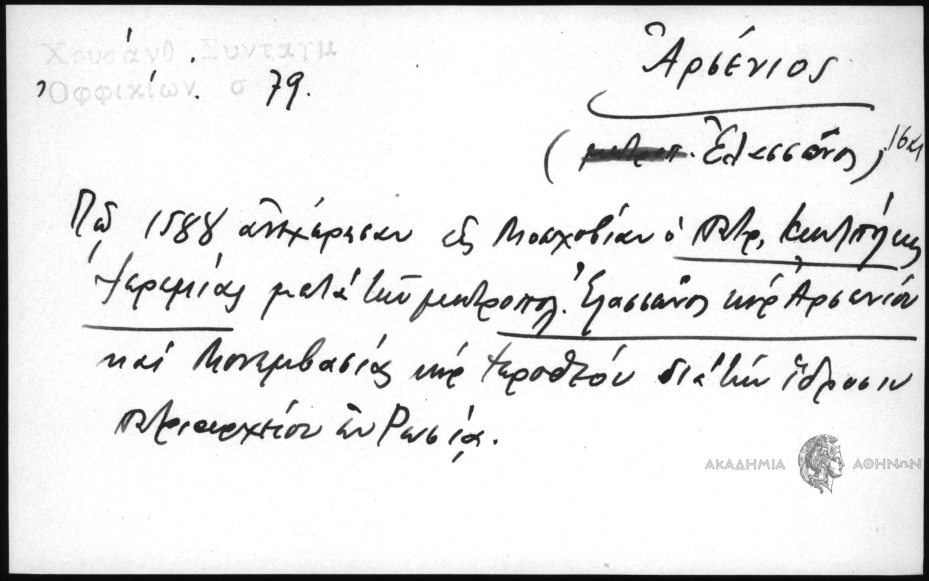 Χρυσάνθ. Συνταγμ
Ὀφφικίων σ 79.
Ἀρσένιος
(μητροπ. Ἐλασσῶνος)
Τῷ 1588 ἀνεχώρησαν εἰς Μοσχοβίαν ὁ πατρ. Κωνπόλεως
Ἱερεμίας μετὰ τοῦ μητροπολ. Ἐλασσῶνος κὺρ Ἀρσενίου
καὶ Μονεμβασίας κὺρ Ἱεροθέου διὰ τὴν ἵδρυσιν
πατριαρχείου ἐν Ρωσίᾳ.
ΑΚΑΔΗΜΙΑ ΑΘΗΝΩΝ